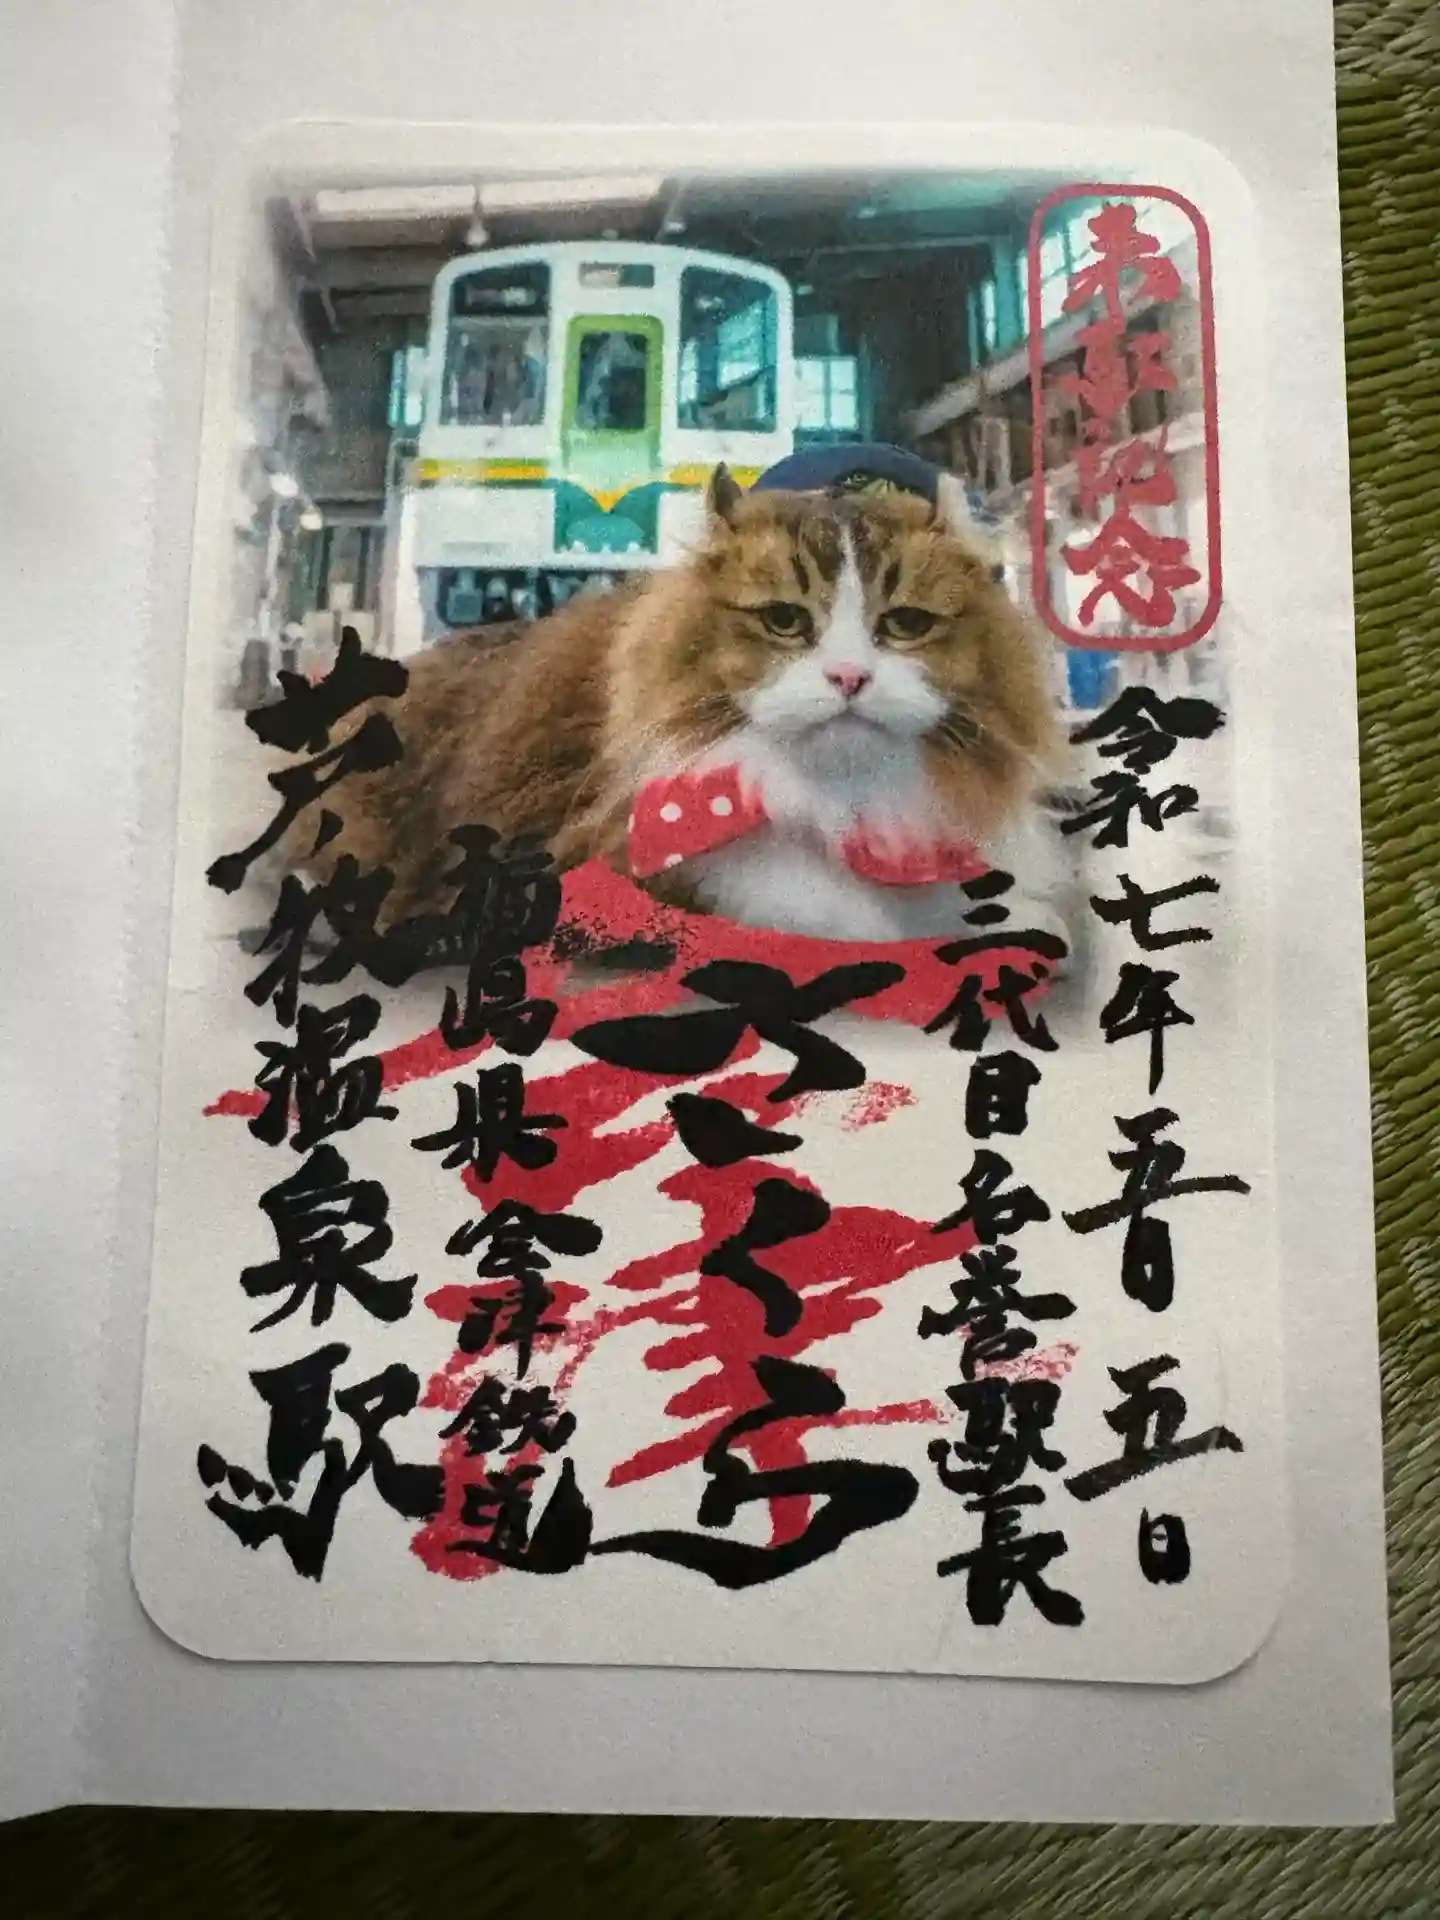 来駅記念
令和七年五月五日
三代目名誉駅長
さくら
福島県会津鉄道
芦ノ牧温泉駅